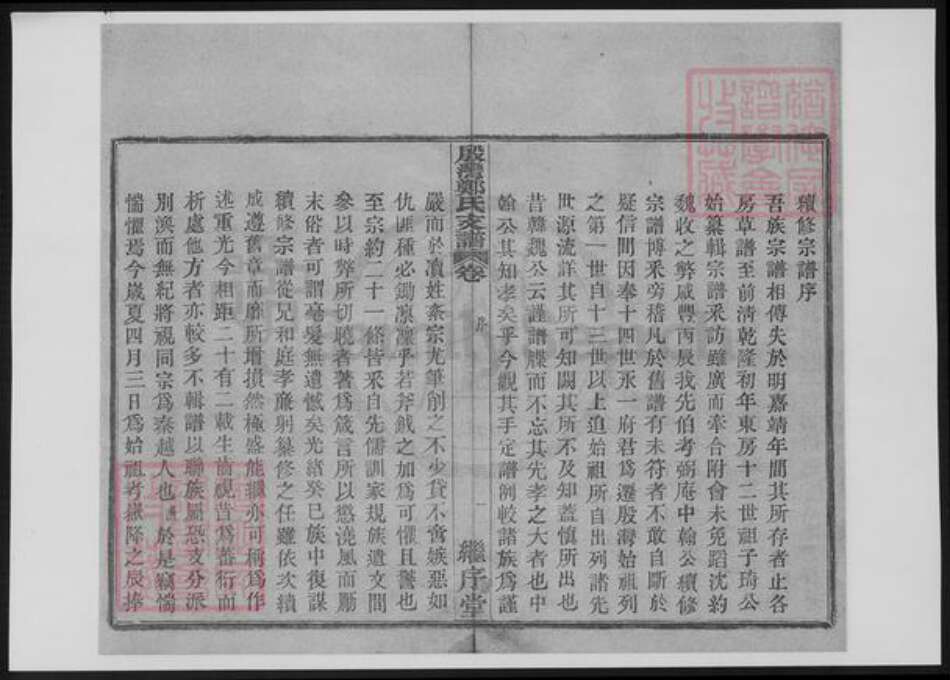 續修宗譜序
吾族宗譜相傳失於明嘉靖年間其所存者止各
房草譜至前清乾隆初年東房十二世祖子琦公
始纂輯宗譜釆訪雖廣而牽合附會未免蹈沈約
魏收之弊咸豐丙辰我先伯考弼庵中翰公續修
宗譜博釆旁稽凡於舊譜有未符者不敢自斷於
疑信間因奉十四世永一府君爲遷殷灣始祖列
之第一世自十三世以上迨始祖所自出列諸先
世源流詳其所可知闕其所不及知蓋慎所出也
昔韓魏公云謹譜牒而不忘其先孝之大者也中
翰公其知孝矣乎今觀其手定譜例較諸族爲謹
殷灣鄭氏支譜 卷
序
一
繼序堂
嚴而於瀆姓紊宗尤筆削之不少貸不啻嫉惡如
仇匪種必鋤凛凛乎若斧鉞之加爲可懼且警也
至宗約二十一條皆釆自先儒訓家規族遺文間
參以時弊所切曉者著爲箴言所以懲澆風而勵
末俗者可謂毫髮無遺憾矣光緒癸巳族中復謀
續修宗譜從兄和庭孝廉躬纂修之任雖依次續
成遵舊章而靡所增損然極盛能繼亦可稱爲作
述重光今相距二十有二載生齒視昔爲蕃衍而
析處他方者亦較多不輯譜以聯族屬恐支分派
別渙而無紀將視同宗爲秦越人也 於是竊惴
惴懼焉今歲夏四月三日爲始祖考嶽降之辰捧